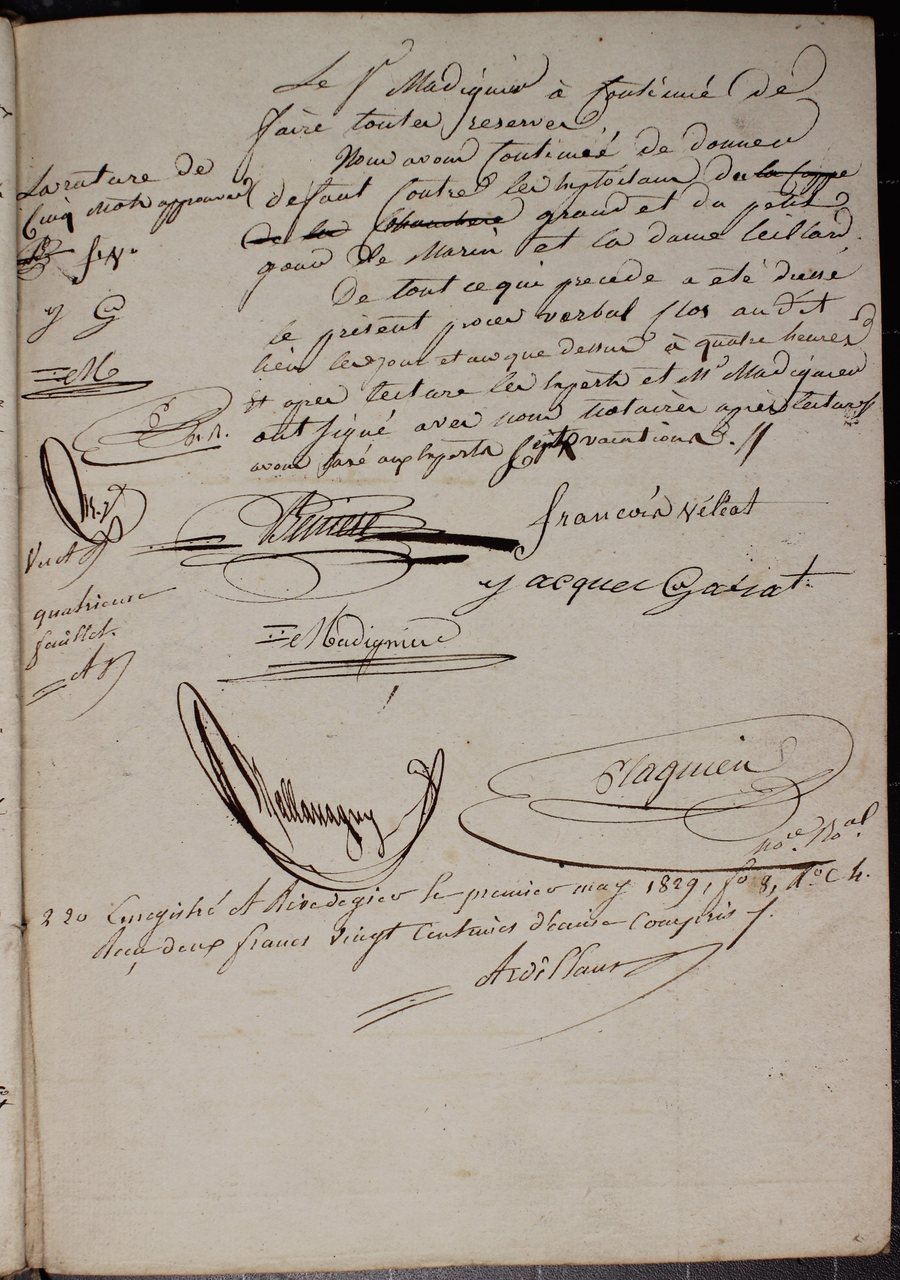 Le Sr Madignier à continué de
faire toutes reserves
Nous avons continué de donner
defaut contre les exploitans du la Cappe
de la Chambrere grand et du petit
gour de Marin et la dame Teillard.
De tout ce qui precede a eté dressé
le présent procès verbal clos audit
lieu les jour et an que dessus à quatre heures
et apres lecture les experts et Mr Madignier
ont signé avec nous notaires après lecture
avons taxé aux experts sept vacations. //
La rature de
cinq mots approuvée
f. V.
y G
M
françois véléat
Jacques Garat
Madignier
Vu et
quatrieme
feuillet.
Plagnieu
no.re Roal.
220 Enregistré à Rivedegier le premier may 1829, fo 8, Ro C 4.
Reçu deux francs vingt centimes dixieme compris.
Ardillaux